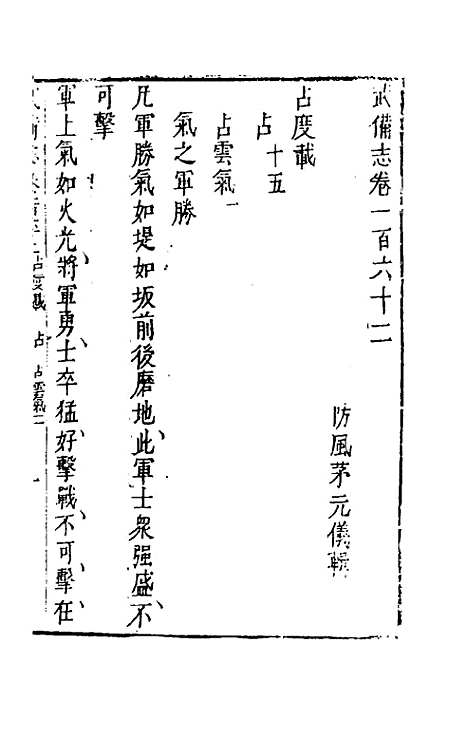 武備志卷一百六十二
防風茅元儀輯
占度載
占十五
占雲氣一
氣之軍勝
凡軍勝氣如堤如坂前後磨地此軍士衆强盛不
可擊
軍上氣如火光將軍勇士卒猛好擊戰不可擊在
占度載 占 占雲氣一